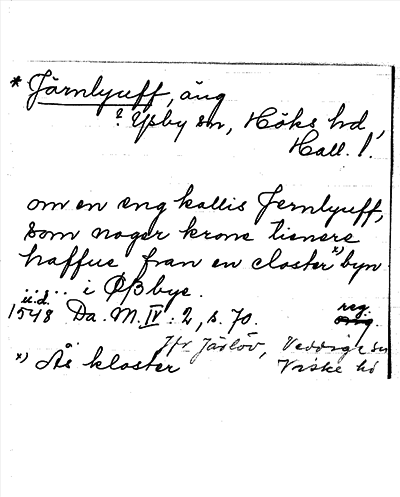 * Järnlyuff, äng
? Ysby sn, Höks hd,
Hall. l.
om en eng kallis Jernlyuff,
som noger krone tienere
haffue fran en closter x) byn
.. .. i Øßbye.
u.d.
1548 Da. M. IV: 2, s. 70. reg.
Jfr Järlöv, Veddige sn
x) Ås kloster Viske hd